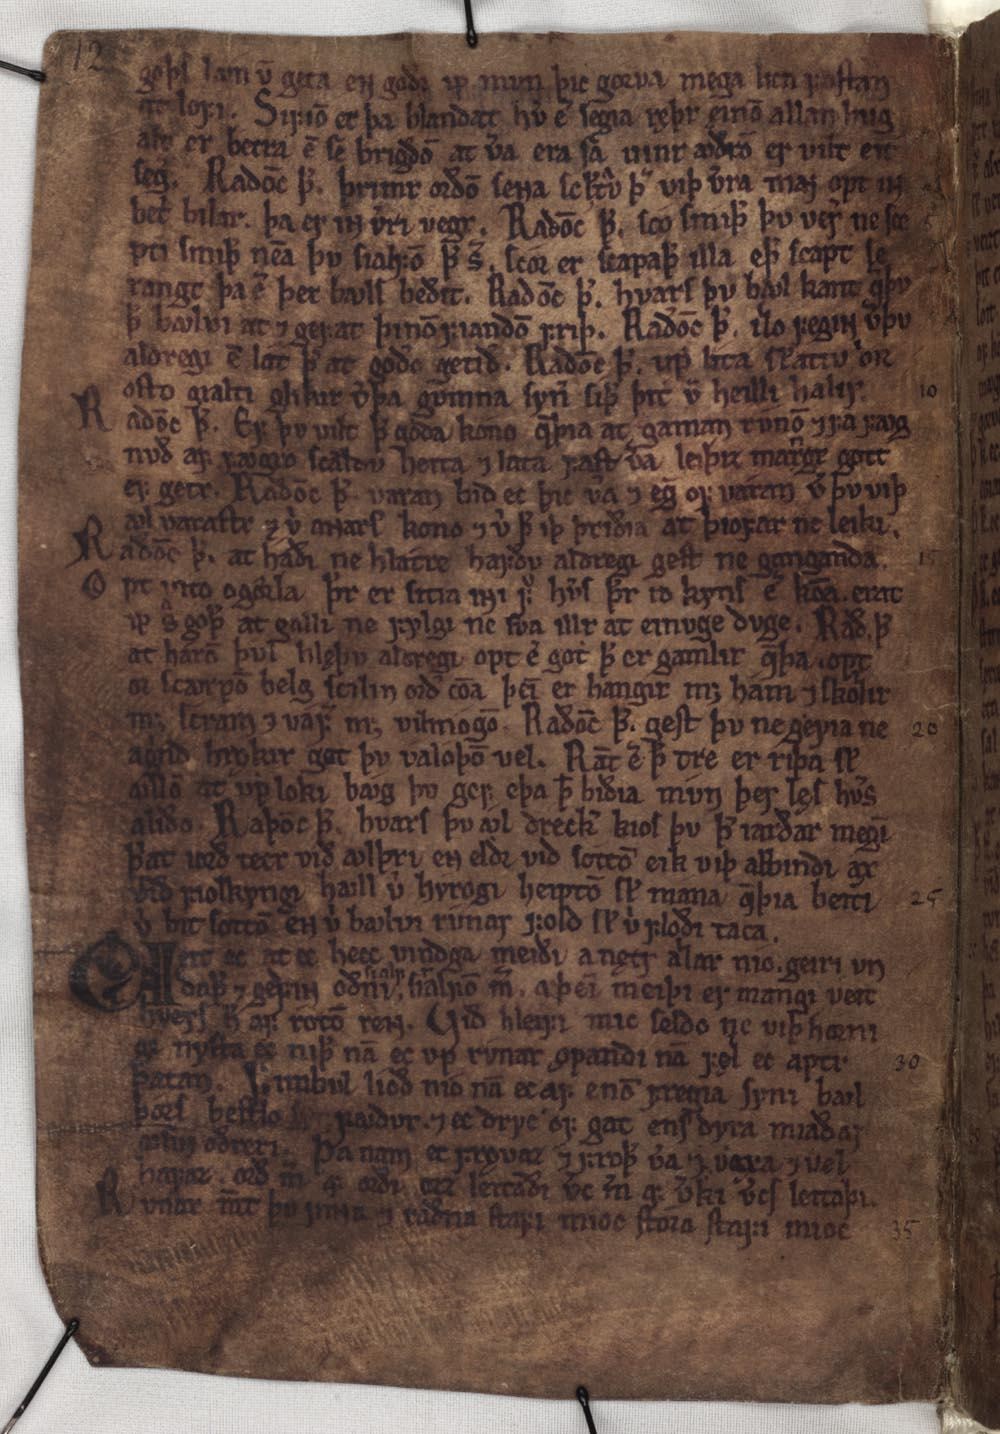 12
goþs laun v̄ geta en goðr . mun þic gorva mega licn fastan
at lofi. Sifiō er þa blandat hv̄ er segia ręþr einō allan hug
alt er betra ē se brigdō at v̄a era sa vinr odrō er vilt eit
seg. Radōc þ̄. þrimr ordō seɴa þ viþ v̄ra maɴ opt iɴ
betri bilar. þa er iɴ v̄ri vegr. Radōc þ̄. sco smiþ þu verþ ne scę
pti smiþ nēa þu sialfō þ̄ s. scór er scapaþ illa eþ scapt se
rangt þa ē þer bauls beðit. Radōc þ̄. hvars þu baul kant q̄þu
þ̄ baulvi at ⁊ gefat þinō fiandō friþ. Radōc þ̄. illo fegiɴ v̄þu
aldregi ē lát þ̄ at godo getid. Radōc þ̄. up lita scalattu or
osto gialti glikir v̄þa gumna synir siþ þic v̄ heilli halir. 10
Radōc þ̄. Ef þu vilt þ̄ goda kono q̄þia at gaman rúnō ⁊ fa faug
nuð af faugro scaldu heita ⁊ lata fast v̄a leiþiz mangr gott
ef getr. Radōc þ̄ varan bid ec þic v̄a ⁊ eg ofvaran v̄ þu viþ
aul varastr ⁊ v̄ aɴars kono ⁊ v̄ þ̄ iþ þriðia at þiofar ne leiki.
Radōc þ̄. at háði ne hlátre hafðu aldregi gest ne ganganda. 15
Opt vito ogorla þr er sitia iɴi f hv̄s þr ro kyns ē koma. erat
s goþ at galli ne fylgi ne sva illr at einuge duge. Rad. þ̄
at hárō þul hlęþu aldregi opt ē gott þ er gamlir q̄þa . opt
or scarpō belg scilin orð cōa þeī er hangir m; hám ⁊ skollir
m; scrám ⁊ váf m; vilmogō. Radōc þ̄. gest þu ne geyia ne 20
agrind hrøkir get þu valoþō vel. Rāt ē þ̄ tre er riþa sc
aullō at uploki baug þu gef eþa þ̄ biðia mun þer lęs hv̄s
aliðo. Raþōc þ̄. hvars þu aul dreckr kios þu þ̄ iarðar megī
þat iorð tecr við aulþri en eldr vid sottō eik viþ abbindi ax
við fiolkyngi haull v̄ hyrogi heiptō sc mána q̄þia beiti 25
v̄ bit sottō en v̄ baulvi rúnar fold sc v̄ floði taca.
Veit ec at ec hecc vindga meiði a nętr allar nio. geiri un
daþ ⁊ gefiɴ oðni. sialfr sialfō mer. a þeī meiþi er mangi veit
hvers hā af rotō reɴ. Við hleifi mic seldo ne viþ horni
gi nysta ec niþ nā ec up rúnar øpandi nā fel ec aptr 30
þatan. Fimbul lioð nio nā ec af enō frægia syni baul
þors bestlo faudur. ⁊ ec dryc of gat ens dyra miaðar
ausiɴ odreri. Þa nam ec frevaz ⁊ froþr v̄a ⁊ vaxa ⁊ vel
hafaz. orð m̄ af orði orz leitaði v̄c m̄ af v̄ki v̄cs leitaþi.
Rúnar mt þu fiɴa ⁊ ráðna stafi mioc stóra stafi mioc 35